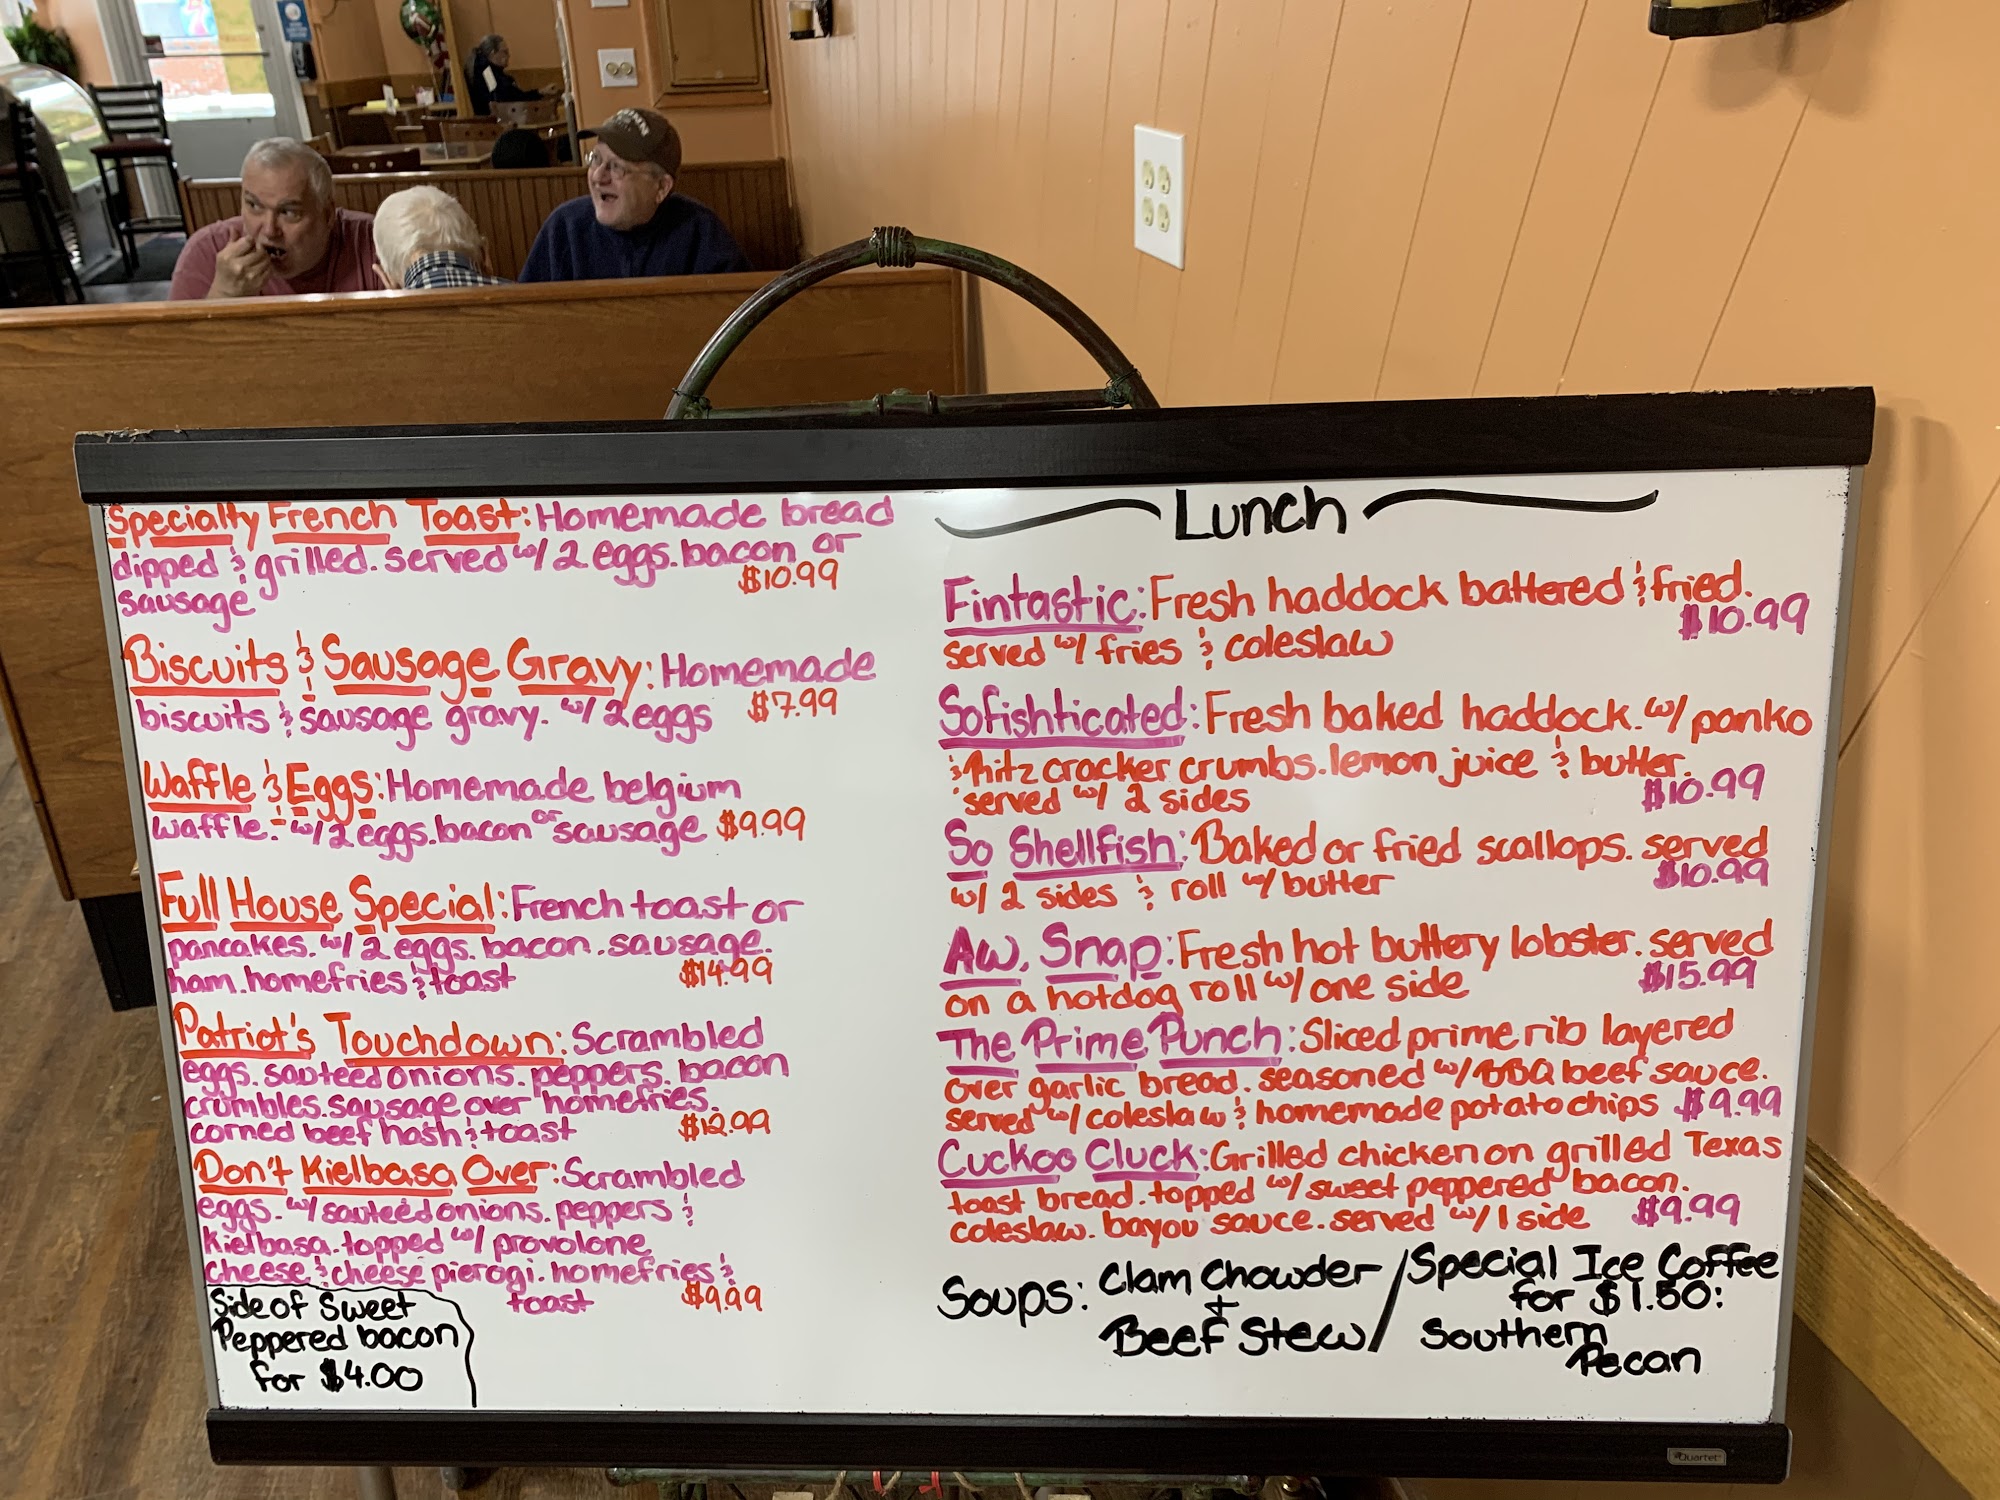 Specialty French Toast: Homemade bread
dipped & grilled. served w/ 2 eggs. bacon or
sausage $10.99
Biscuits & Sausage Gravy: Homemade
biscuits & sausage gravy. w/ 2 eggs $7.99
Waffle & Eggs: Homemade belgium
waffle. w/ 2 eggs. bacon or sausage $9.99
Full House Special: French toast or
pancakes. w/ 2 eggs. bacon. sausage.
ham. homefries & toast $14.99
Patriot's Touchdown: Scrambled
eggs. sauteed onions. peppers. bacon
crumbles. sausage over homefries.
corned beef hash & toast $12.99
Don't Kielbasa Over: Scrambled
eggs. w/ sauteed onions. peppers &
kielbasa. topped w/ provolone
cheese & cheese pierogi. homefries &
toast $9.99
Side of Sweet
Peppered bacon
for $4.00
Lunch
Fintastic: Fresh haddock battered & fried.
served w/ fries & coleslaw $10.99
Sofishticated: Fresh baked haddock. w/ panko
& ritz cracker crumbs. lemon juice & butter.
served w/ 2 sides $10.99
So Shellfish: Baked or fried scallops. served
w/ 2 sides & roll w/ butter $10.99
Aw, Snap: Fresh hot buttery lobster. served
on a hotdog roll w/ one side $15.99
The Prime Punch: Sliced prime rib layered
over garlic bread. seasoned w/ BBQ beef sauce.
served w/ coleslaw & homemade potato chips $9.99
Cuckoo Cluck: Grilled chicken on grilled Texas
toast bread. topped w/ sweet peppered bacon.
coleslaw. bayou sauce. served w/ 1 side $9.99
Soups: Clam Chowder
+
Beef Stew
Special Ice Coffee
for $1.50:
Southern
Pecan
Quartet